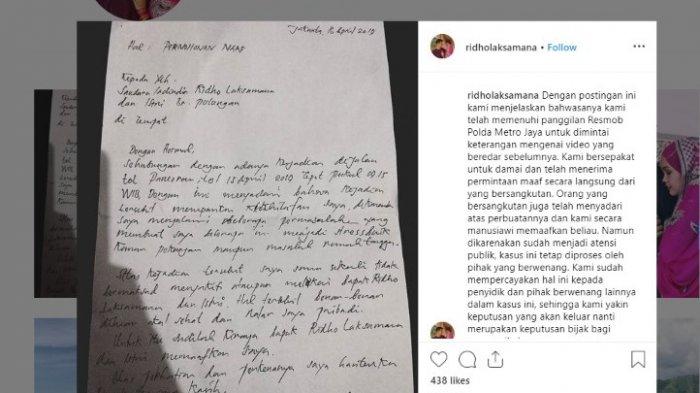 Jakarta, 15 April 2019
Hal : PERMOHONAN MAAF
Kepada Yth.
Saudara Indindio Ridho Laksamana
dan Istri
di tempat
Dengan Hormat,
Sehubungan dengan adanya kejadian di jalan
tol 15 April 2019 Tepat pukul
WIB, Dengan ini menyadari bahwa kejadian
tersebut merupakan saya, dikarenakan
saya mengalami beberapa permasalahan yang
membuat saya belakangan ini menjadi
maupun masalah rumah tangga.
Atas kejadian tersebut, saya sama sekali tidak
bermaksud menyakiti ataupun melukai bapak Ridho
Laksamana dan Istri. Hal tersebut benar-benar
diluar akal sehat dan nalar saya pribadi.
Untuk itu kiranya bapak Ridho Laksamana
dan istri memaafkan saya.
Atas perhatian dan saya haturkan
Kasih.
ridholaksamana • Follow
ridholaksamana Dengan postingan ini
kami menjelaskan bahwasanya kami
telah memenuhi panggilan Resmob
Polda Metro Jaya untuk dimintai
keterangan mengenai video yang
beredar sebelumnya. Kami bersepakat
untuk damai dan telah menerima
permintaan maaf secara langsung dari
yang bersangkutan. Orang yang
bersangkutan juga telah menyadari
atas perbuatannya dan kami secara
manusiawi memaafkan beliau. Namun
dikarenakan sudah menjadi atensi
publik, kasus ini tetap diproses oleh
pihak yang berwenang. Kami sudah
mempercayakan hal ini kepada
penyidik dan pihak berwenang lainnya
dalam kasus ini, sehingga kami yakin
keputusan yang akan keluar nanti
merupakan keputusan bijak bagi
438 likes